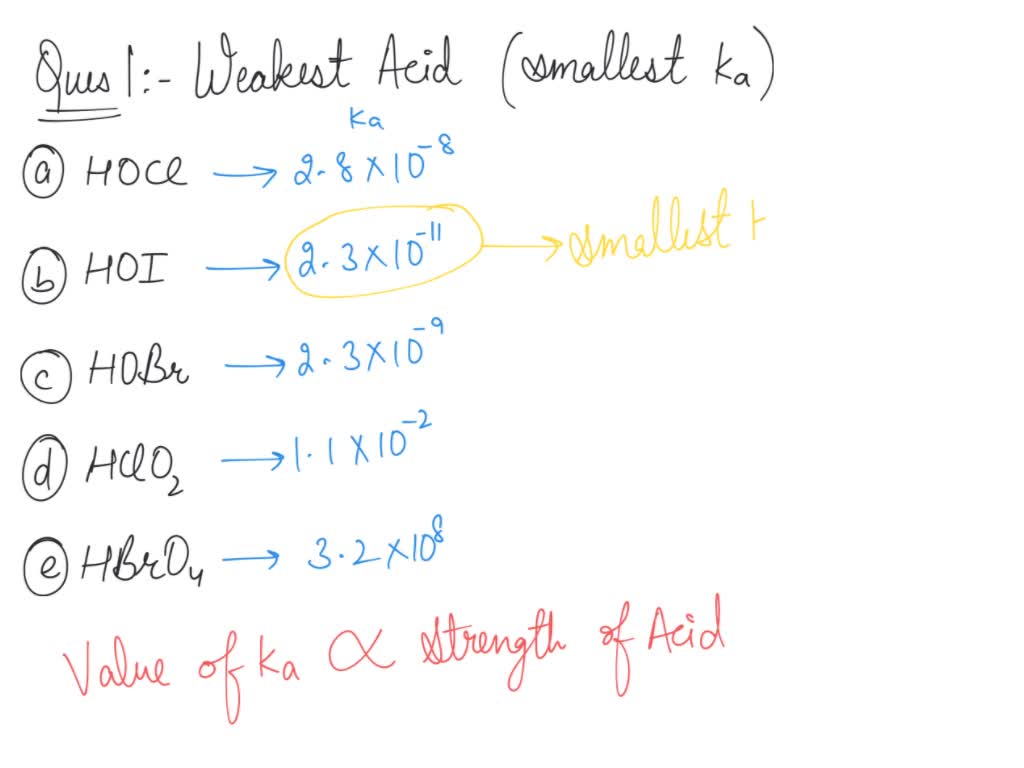 Ques 1:- Weakest Acid (smallest ka)
ka
a HOCl → 2.8×10⁻⁸
b HOI → 2.3×10⁻¹¹ → smallest
c HOBr → 2.3×10⁻⁹
d HClO₂ → 1.1×10⁻²
e HBrO₄ → 3.2×10⁸
Value of ka ∝ strength of Acid